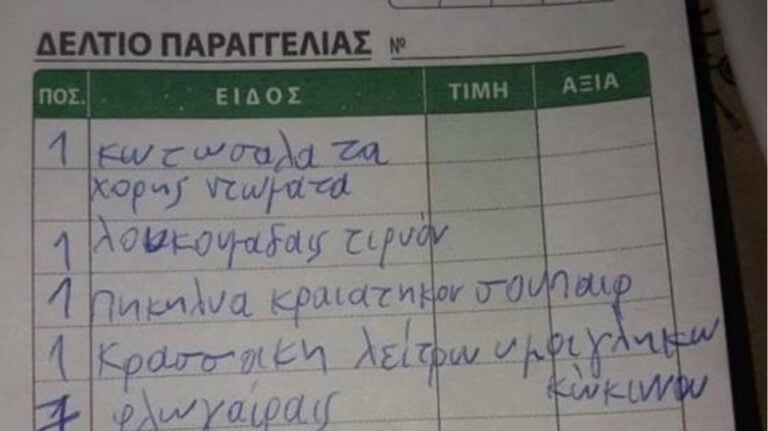 ΔΕΛΤΙΟ ΠΑΡΑΓΓΕΛΙΑΣ Νο
ΠΟΣ. ΕΙΔΟΣ ΤΙΜΗ ΑΞΙΑ
1 κωτωσαλατα
χορης ντωματα
1 λουκουμαδαις τιρυόν
1 πηκηλυα κραιατηκον σουπαιρ
1 κρασσακη λείτρω ημοιγληκω
κώκινου
1 φλωγαίραις